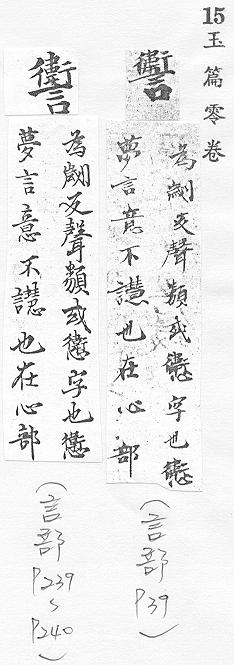 15玉篇零卷
讏
為劌反聲類或㦣字也㦣
夢言意不譿也在心部
(言部P39)
讏
為劌反聲類或㦣字也㦣
夢言意不譿也在心部
(言部P239~P240)